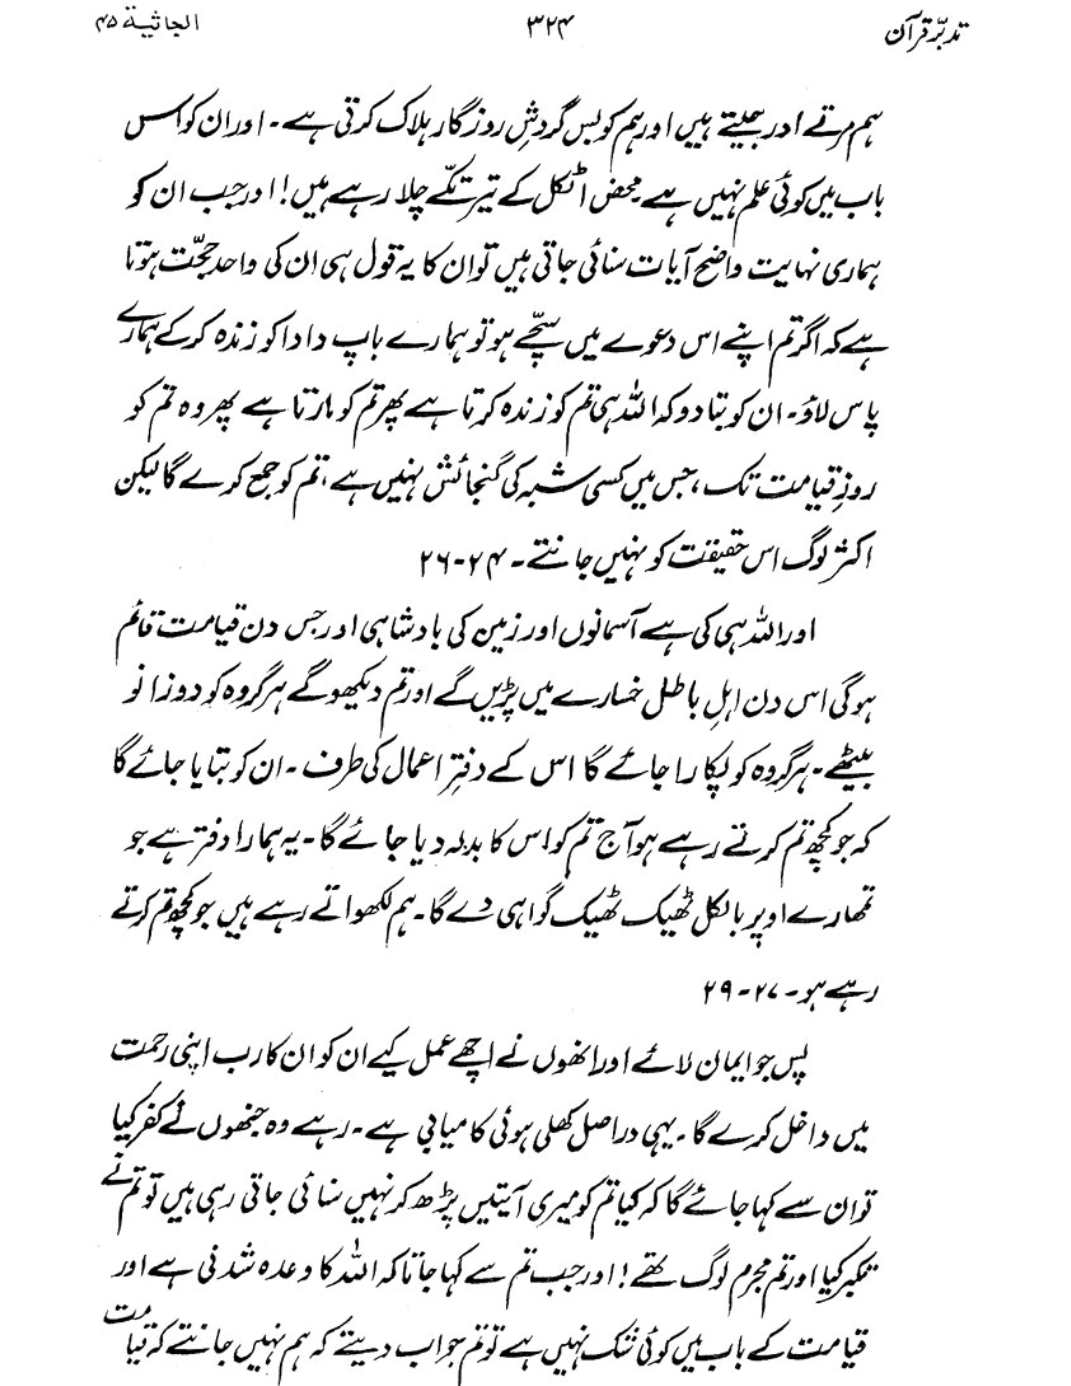 تدبّرِ قرآن ۳۲۴ الجاثیة ۴۵
ہم مرتے اور جیتے ہیں اور ہم کو بس گردشِ روزگار ہلاک کرتی ہے۔ اور ان کو اس
باب میں کوئی علم نہیں ہے محض اٹکل کے تیر تکّے چلا رہے ہیں! اور جب ان کو
ہماری نہایت واضح آیات سنائی جاتی ہیں تو ان کا یہ قول ہی ان کی واحد حجّت ہوتا
ہے کہ اگر تم اپنے اس دعوے میں سچّے ہو تو ہمارے باپ دادا کو زندہ کر کے ہمارے
پاس لاؤ۔ ان کو بتا دو کہ اللہ ہی تم کو زندہ کرتا ہے پھر تم کو مارتا ہے پھر وہ تم کو
روزِ قیامت تک، جس میں کسی شبہ کی گنجائش نہیں ہے، تم کو جمع کرے گا لیکن
اکثر لوگ اس حقیقت کو نہیں جانتے۔ ۲۴-۲۶
اور اللہ ہی کی ہے آسمانوں اور زمین کی بادشاہی اور جس دن قیامت قائم
ہو گی اس دن اہلِ باطل خسارے میں پڑیں گے اور تم دیکھو گے ہر گروہ کو دوزانو
بیٹھے۔ ہر گروہ کو پکارا جائے گا اس کے دفترِ اعمال کی طرف۔ ان کو بتایا جائے گا
کہ جو کچھ تم کرتے رہے ہو آج تم کو اس کا بدلہ دیا جائے گا۔ یہ ہمارا دفتر ہے جو
تمھارے اوپر بالکل ٹھیک ٹھیک گواہی دے گا۔ ہم لکھواتے رہے ہیں جو کچھ تم کرتے
رہے ہو۔ ۲۷-۲۹
پس جو ایمان لائے اور انھوں نے اچھے عمل کیے ان کو ان کا رب اپنی رحمت
میں داخل کرے گا۔ یہی دراصل کھلی ہوئی کامیابی ہے۔ رہے وہ جنھوں نے کفر کیا
تو ان سے کہا جائے گا کہ کیا تم کو میری آیتیں پڑھ کر نہیں سنائی جاتی رہی ہیں تو تم نے
تکبر کیا اور تم مجرم لوگ تھے! اور جب تم سے کہا جاتا کہ اللہ کا وعدہ شدنی ہے اور
قیامت کے باب میں کوئی شک نہیں ہے تو تم جواب دیتے کہ ہم نہیں جانتے کہ قیامت